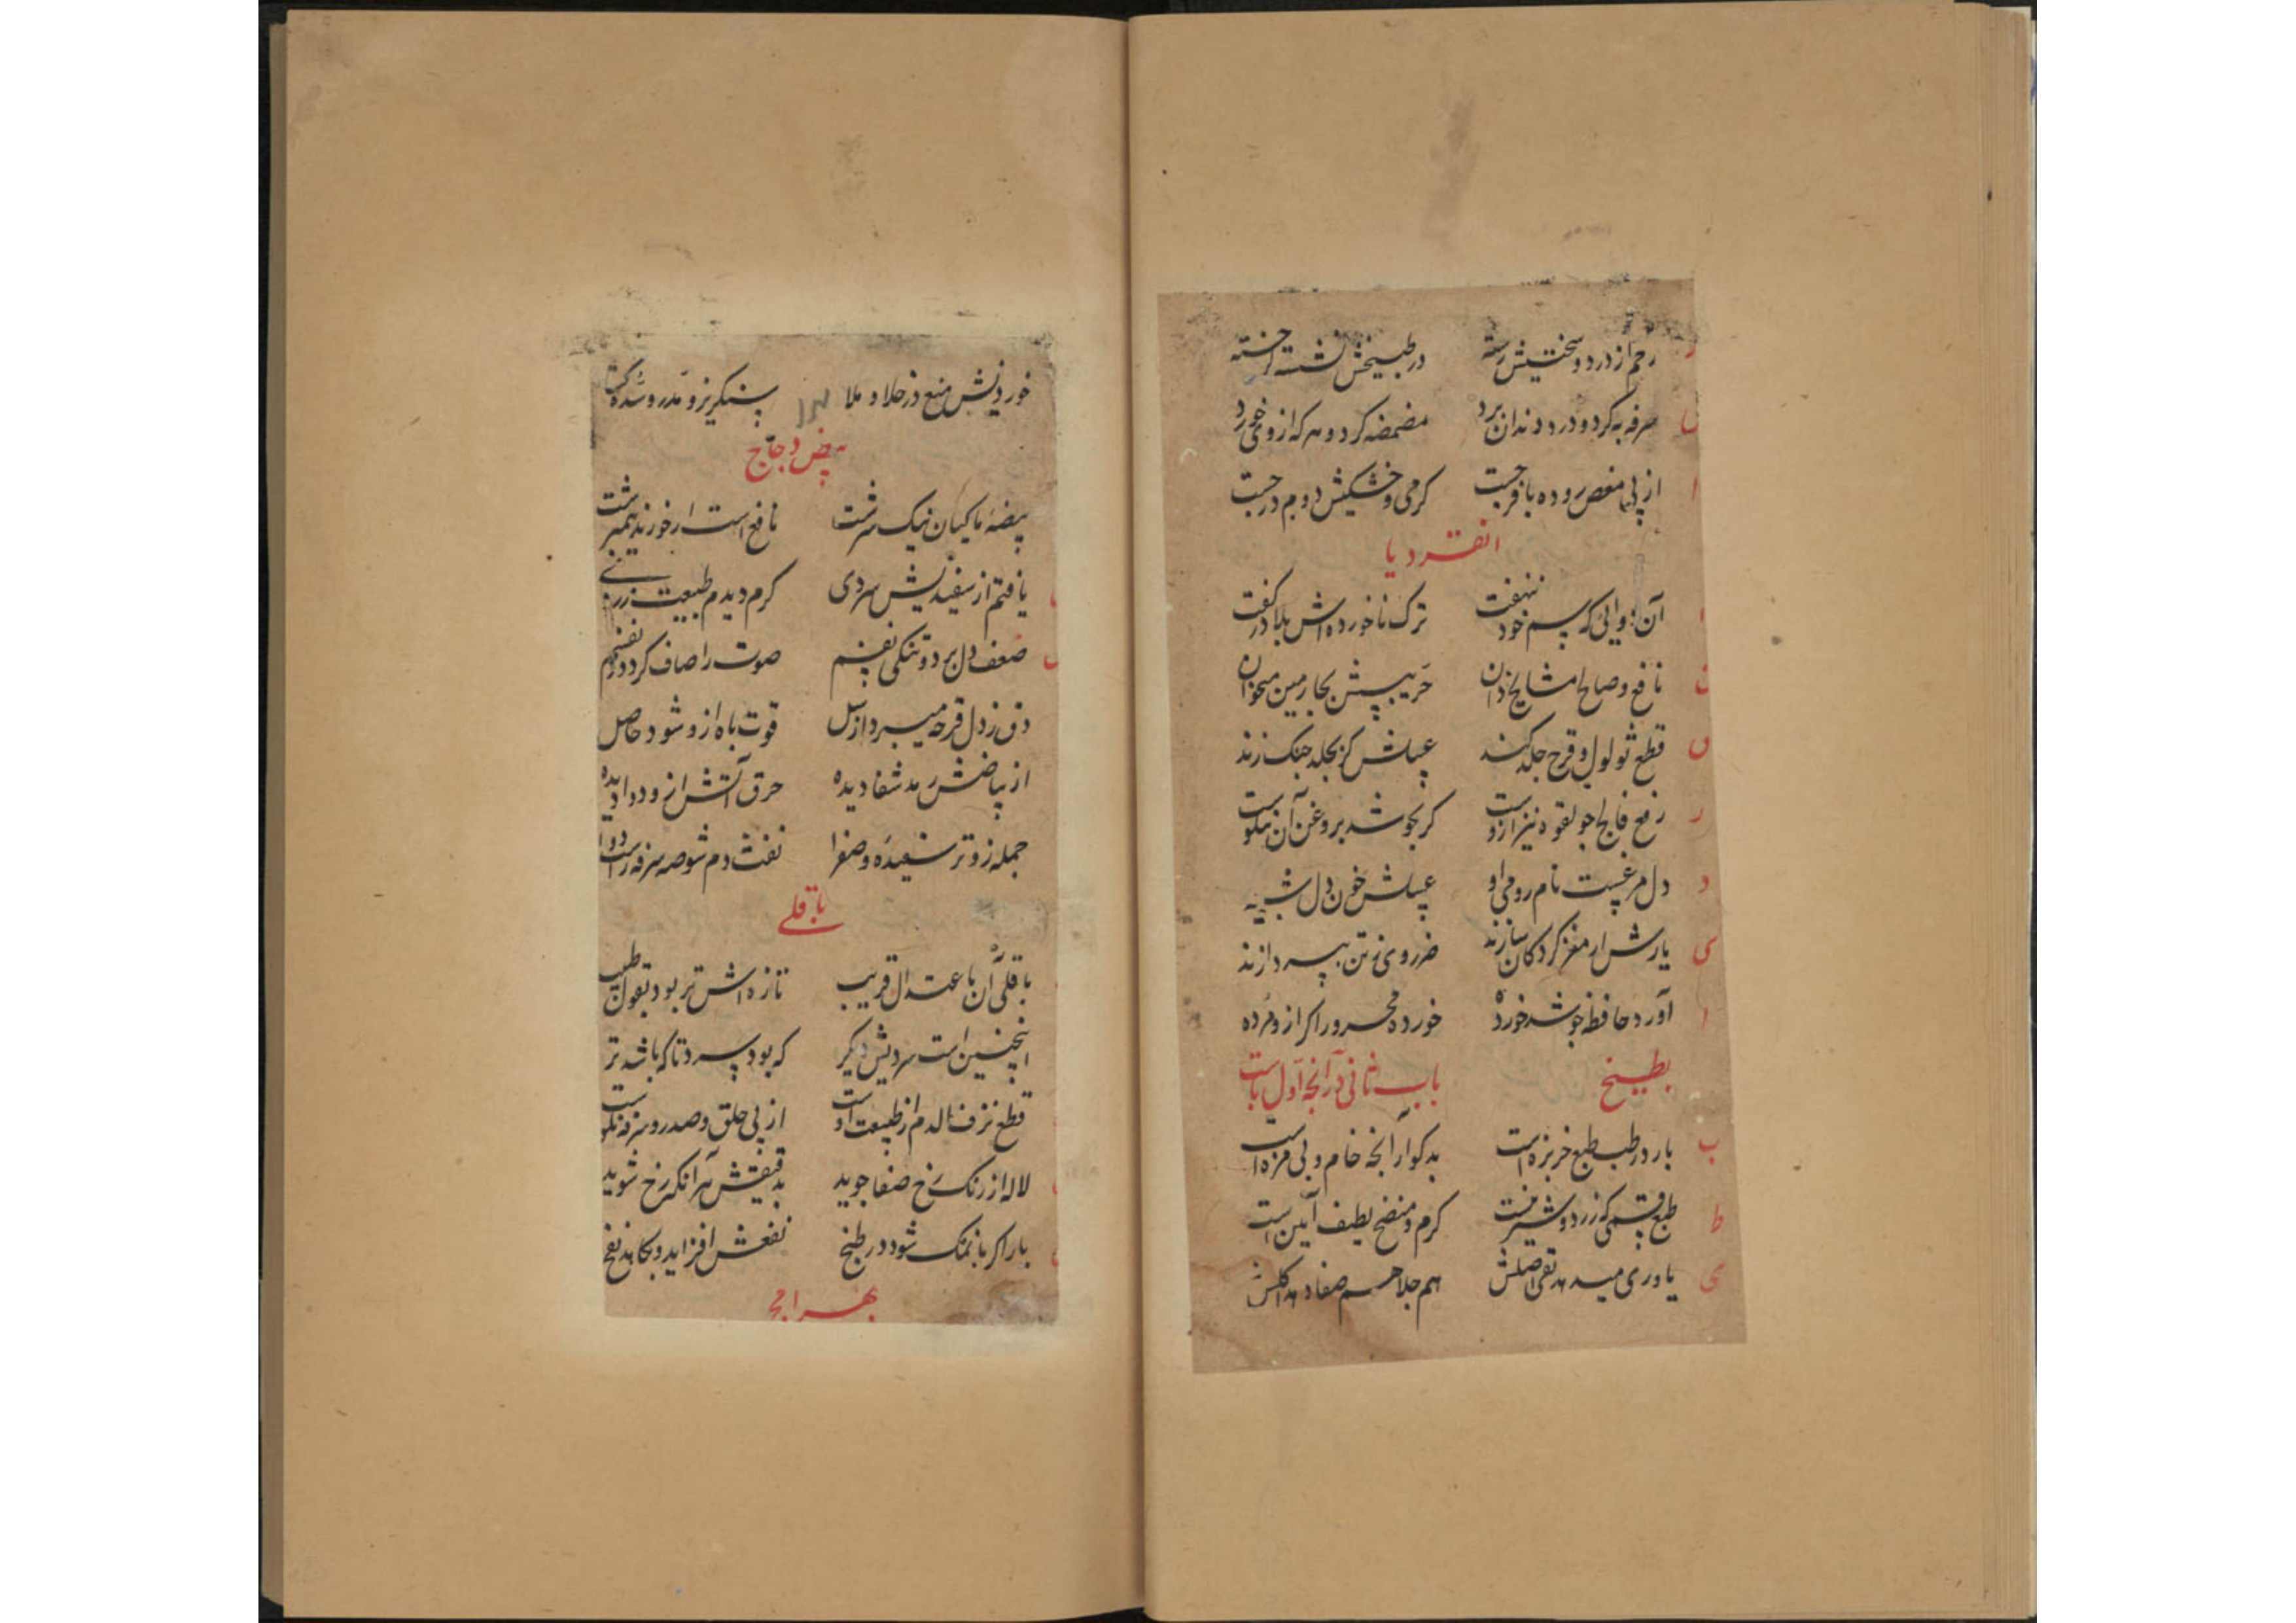 رحم از درد و سختیش رسته در طبیخش نشسته
سرفه به کرد و درد دندان برد مضمضه کرد و هر که از وی خورد
از پی مغص روده با فرجست کرمی و خشکیش دوم درجست
انقردیا
آن دوایی که پسم خود ننهفت ترک ناخورده اش بلادر گفت
نافع و صالح مشایخ دان بجارمین میخوان
قطع ثولول و قرح جلد کند چلد جنک زند
رفع فالج چو لقوه نیز ازوست کر بجوشد بروغن آن نیکوست
دل مرغیست نام رومی او خون دل
یارش ار مغز کردکان سازند ضرر وی ز تن بپردازند
آورد حافظه چو شد خورده خورده محرور اکر ازو مرده
بطیخ باب ثانی در آنچه اول باست
بارد رطب طبع خربزه است بد کوار آنچه خام و بی مزه است
طبع قسمی که زرد و شیرینست کرم و منضج لطیف آیین است
یاوری میدهد تقی اصلش هم جلا هم صفا دهد اکلش
خوردنیش منع در خلا و ملا سنکریز و مدر و سده کشا
بیض دجاج
بیضه ماکیان نیک سرشت نافع است ار خورند نیمبرشت
یافتم از سفیدیش سردی کرم دیدم طبیعت زردی
ضعف دل برد و تنکی نفسم صوت را صاف کرد و
دق ز دل قرحه میبرد از سل قوت باه ازو شود حاصل
از بیاضش رمد شفا دیده حرق آتش ازو دوا دیده
جمله زو تر سفیده و صفرا نفث دم شوصه سرفه راست دوا
باقلی
باقلی آن باعتدال قریب تازه اش تر بود بقول طبیب
اینچنین است سردیش دیکر که بود سرد تا که باشد تر
قطع نزف الدم از طبیعت اوست از پی حلق و صدر و سرفه نکوست
لاله از رنک رخ صفا جوید بدقیقش هر آنکه رخ شوید
یار اکر با نمک شود در طبخ نفعش افزاید و بکاهد نفخ
بهرامج